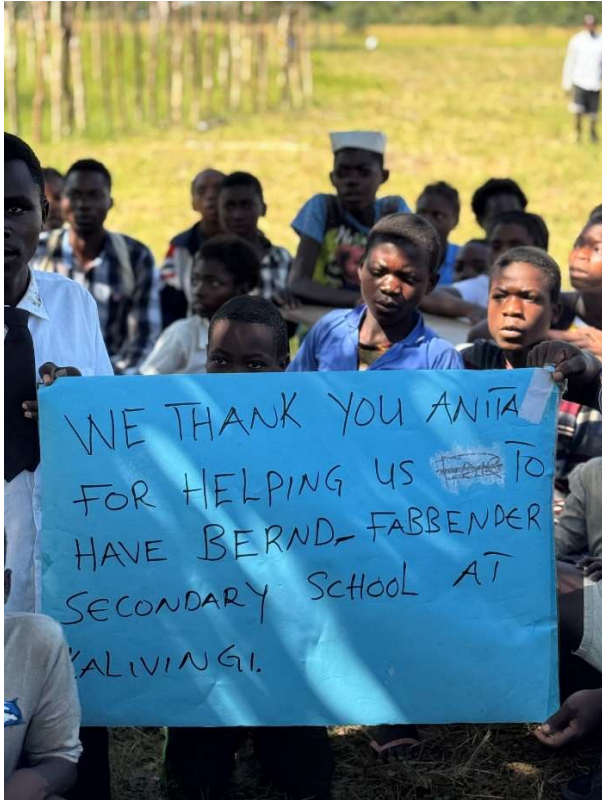 WE THANK YOU ANITA
FOR HELPING US TO
HAVE BERND-FABBENDER
SECONDARY SCHOOL AT
KALIVINGI.